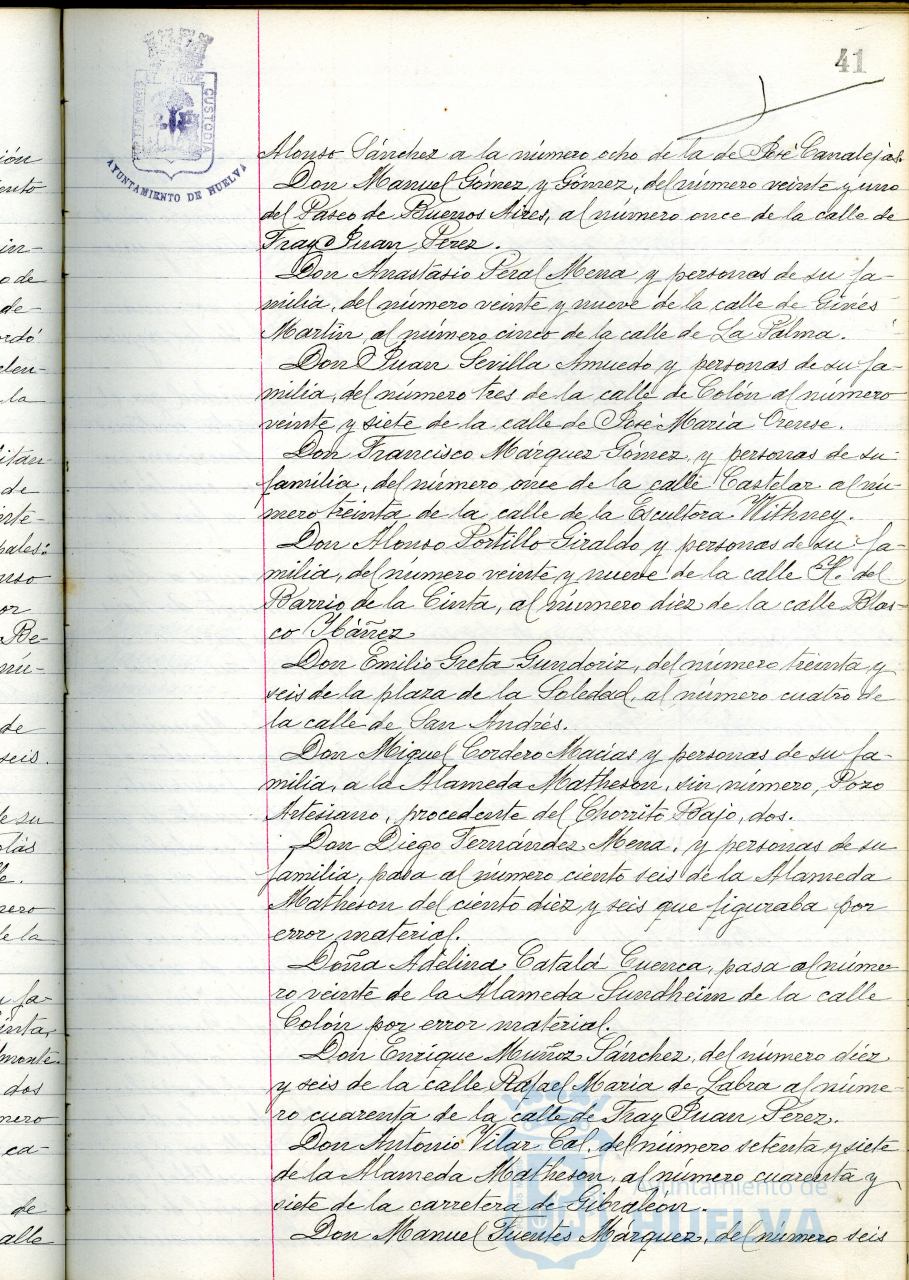 41
PORTUS MARIS ET TERRAE CUSTODIA
AYUNTAMIENTO DE HUELVA
Alonso Sánchez a la número ocho de la de José Canalejas.
Don Manuel Gómez y Gómez, del número veinte y uno
del Paseo de Buenos Aires, al número once de la calle de
Fray Juan Pérez.
Don Anastasio Peral Mena y personas de su fa-
milia, del número veinte y nueve de la calle de Ginés
Martín al número cinco de la calle de La Palma.
Don Juan Sevilla Amuedo y personas de su fa-
milia, del número tres de la calle de Colón al número
veinte y siete de la calle de José María Orense.
Don Francisco Márquez Gómez, y personas de su
familia, del número once de la calle Castelar al nú-
mero treinta de la calle de la Escultora Withney.
Don Alonso Portillo Giraldo y personas de su fa-
milia, del número veinte y nueve de la calle H. del
Barrio de la Cinta, al número diéz de la calle Blas-
co Ibáñez
Don Emilio Greta Gundoriz, del número treinta y
seis de la plaza de la Soledad, al número cuatro de
la calle de San Andrés.
Don Miguel Cordero Macías y personas de su fa-
milia, a la Alameda Matheson, sin número, Pozo
Artesiano, procedente del Chorrito Bajo, dos.
Don Diego Fernández Mena, y personas de su
familia, pasa al número ciento seis de la Alameda
Matheson del ciento diéz y seis que figuraba por
error material.
Doña Adelina Catalá Cuenca, pasa al núme-
ro veinte de la Alameda Sundheim de la calle
Colón por error material.
Don Enrique Muñoz Sánchez, del número diéz
y seis de la calle Rafael María de Labra al núme-
ro cuarenta de la calle de Fray Juan Pérez.
Don Antonio Vilar Cal, del número setenta y siete
de la Alameda Matheson, al número cuarenta y
siete de la carretera de Gibraleón.
Don Manuel Fuentes Márquez, del número seis
Ayuntamiento de
HUELVA